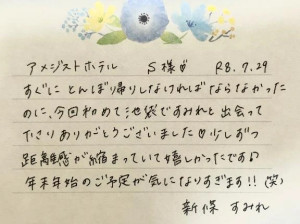 アメジストホテル S様♡ R8.7.29
すぐにとんぼ帰りしなければならなかった
のに、今回初めて池袋ですみれと出会って
下さりありがとうございました♡少しずつ
距離感が縮まっていて嬉しかったです♪
年末年始のご予定が気になりすぎます!!(笑)
新保 すみれ